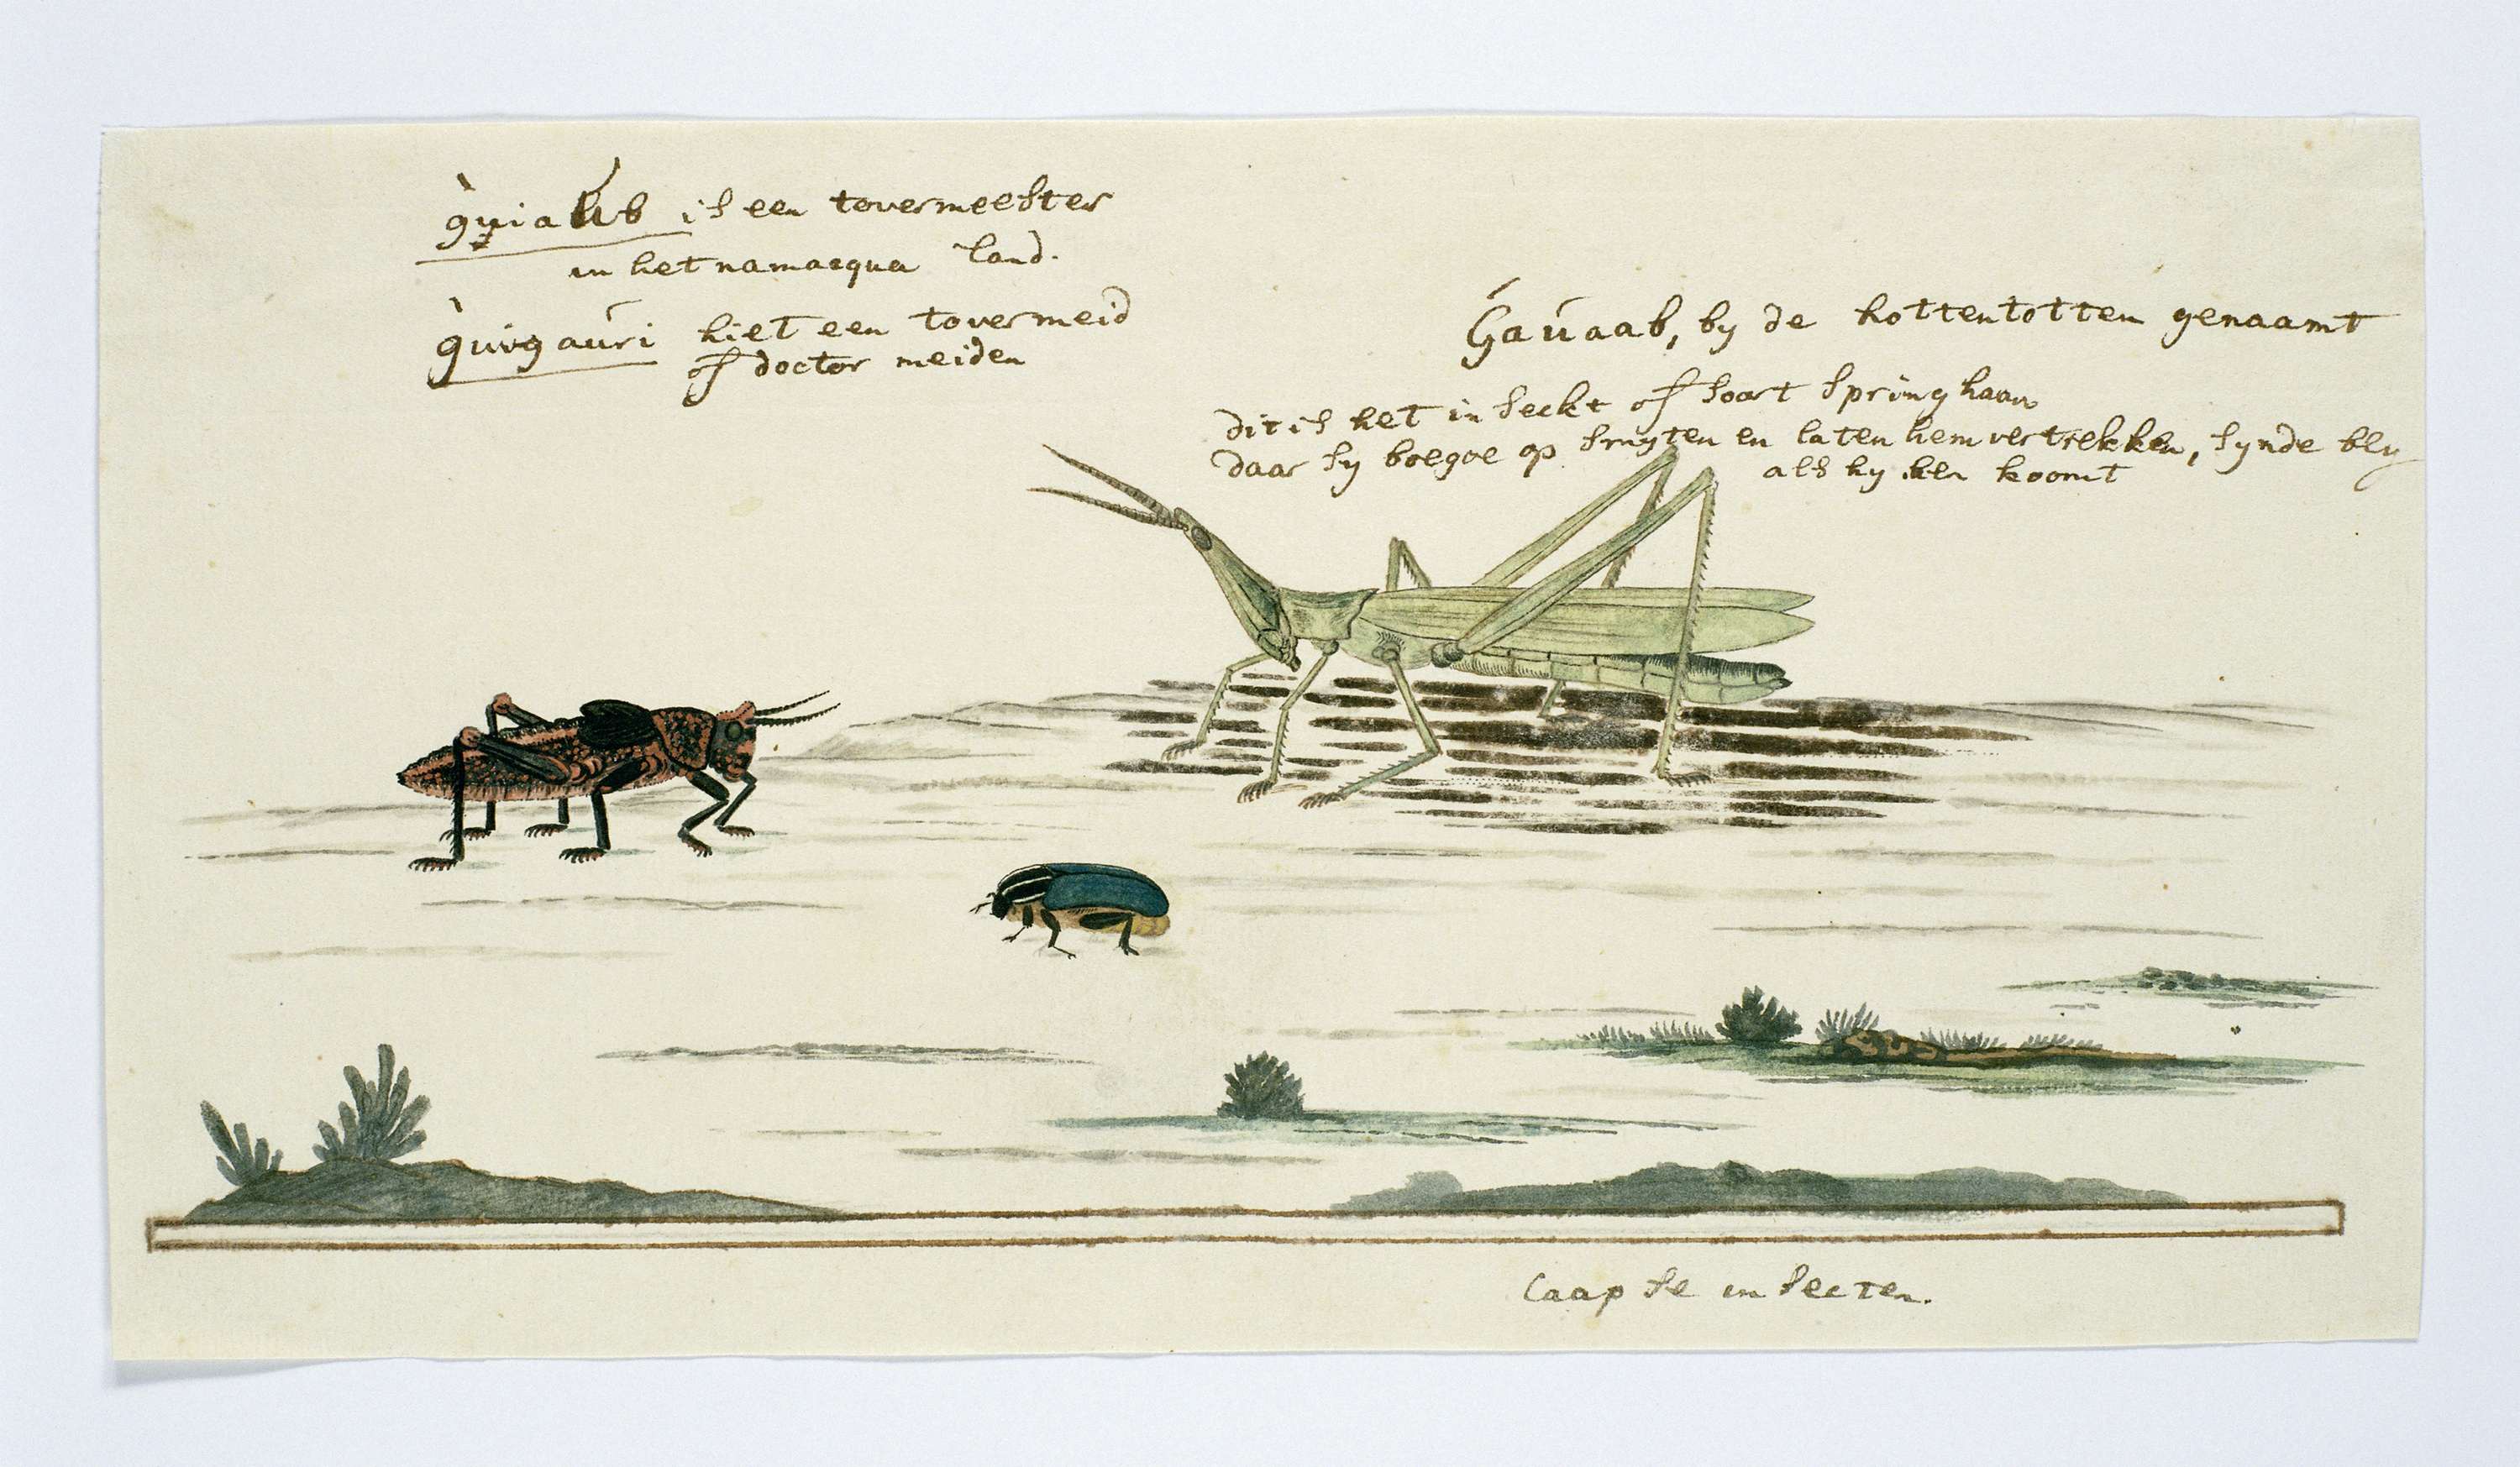 g̀uiaúb is een tovermeester
in het namacqua land.
g̀uigaúri hiet een tovermeid
of doctor meiden
Gaúaab, by de hottentotten genaamt
dit is het inseckt of soort springhaan
daar sy boegoe op smyten en laten hem vertrekken, synde bly
als hy ken koomt
Caapse insecten.